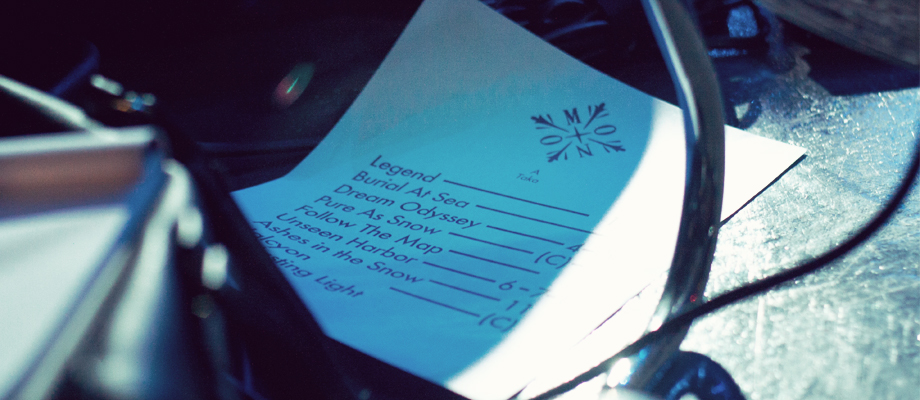 MONO
A
Tako
Legend
Burial At Sea
Dream Odyssey
Pure As Snow
Follow The Map (C)
Unseen Harbor
Ashes in the Snow 6-
Light (C)